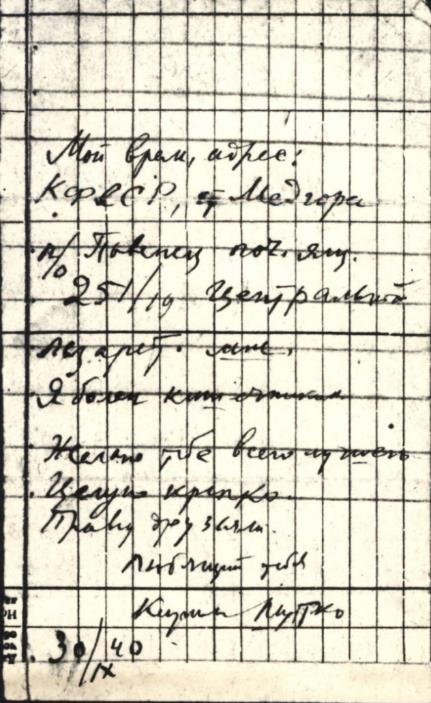 Мой врем, адрес:
КФССР, ст Медгора
п/о Повенец поч. ящ.
251/19 Центральный
лазарет. мне.
Я болен кишечником
Желаю тебе всего лучшего
Целую крепко.
Привет друзьям.
Любящий тебя
Кирилл
30/IX 40